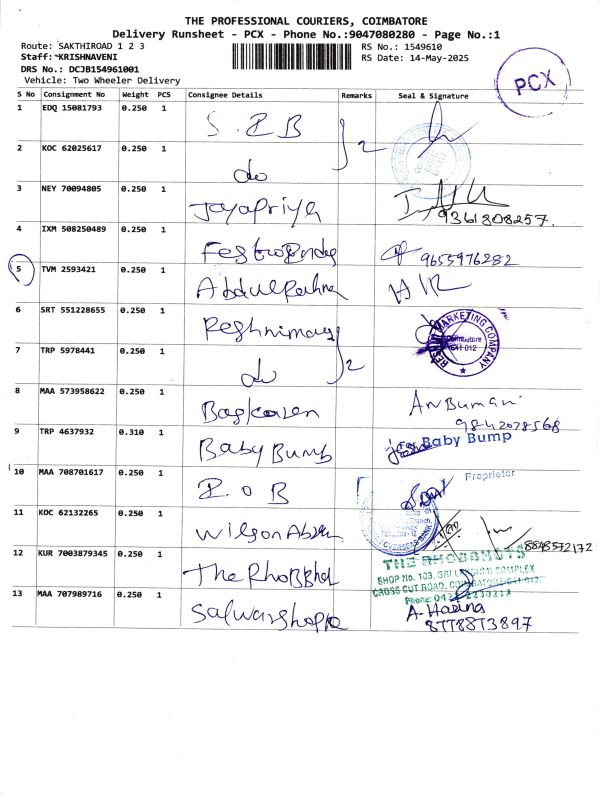 THE PROFESSIONAL COURIERS, COIMBATORE
Delivery Runsheet - PCX - Phone No.:9047080280 - Page No.:1
Route: SAKTHIROAD 1 2 3
RS No.: 1549610
Staff: KRISHNAVENI
RS Date: 14-May-2025
DRS No.: DCJB154961001
Vehicle: Two Wheeler Delivery
PCX
S No Consignment No Weight PCS Consignee Details Remarks Seal & Signature
1 EDQ 15081793 0.250 1 S. I B 2
2 KOC 62025617 0.250 1 do
3 NEY 70094805 0.250 1 Jayapriya 9361808257.
4 IXM 508250489 0.250 1 9655976282
5 TVM 2593421 0.250 1 Abdul Rahma
6 SRT 551228655 0.250 1 2
RESHMI MARKETING COMPANY
Coimbatore
641 012
7 TRP 5978441 0.250 1 do
8 MAA 573958622 0.250 1 Baskaren
9842078568
9 TRP 4637932 0.310 1 Baby Bump For Baby Bump
Proprietor
10 MAA 708701617 0.250 1 I O B
OVERSEAS BANK
11 KOC 62132265 0.250 1 8848572172
12 KUR 7003879345 0.250 1
SHOP No. 103, SRI COMPLEX
CROSS CUT ROAD, COIMBATORE-641 012
Phone:
13 MAA 707989716 0.250 1
8778873897